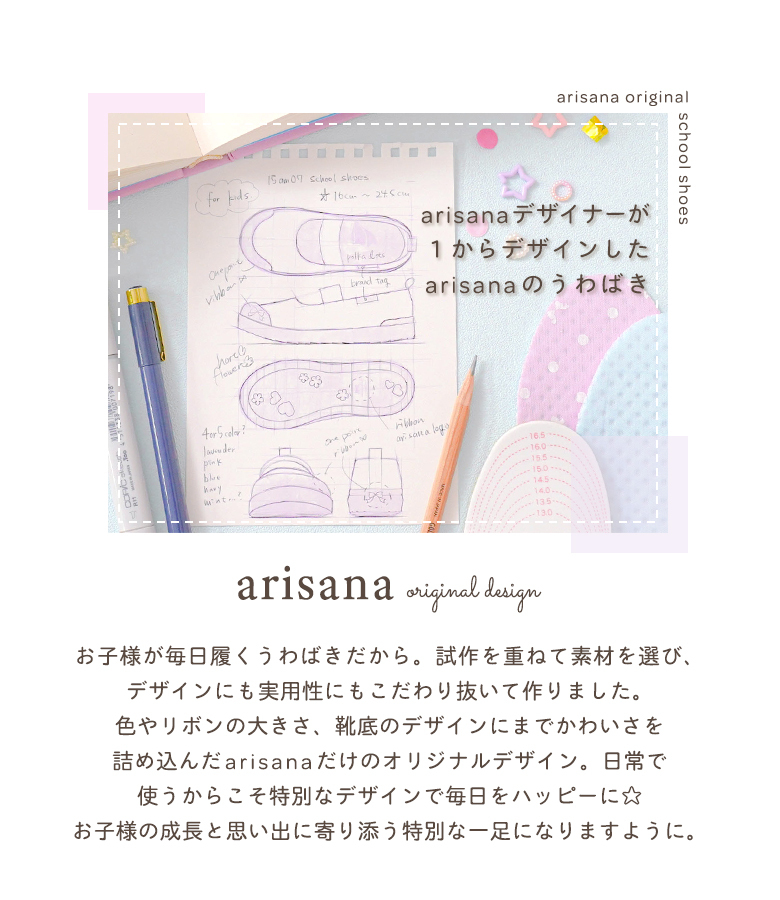 arisana original
school shoes
15am07 school shoes
for kids
☆ 16cm ～ 24.5cm
arisanaデザイナーが
１からデザインした
arisanaのうわばき
brand tag
one point
ribbon
heart
flower
4or5color?
lavender
pink
blue
navy
mint...?
one point
ribbon
ribbon
arisana logo
16.5
16.0
15.5
15.0
14.5
14.0
13.5
13.0
arisana original design
お子様が毎日履くうわばきだから。試作を重ねて素材を選び、
デザインにも実用性にもこだわり抜いて作りました。
色やリボンの大きさ、靴底のデザインにまでかわいさを
詰め込んだarisanaだけのオリジナルデザイン。日常で
使うからこそ特別なデザインで毎日をハッピーに☆
お子様の成長と思い出に寄り添う特別な一足になりますように。